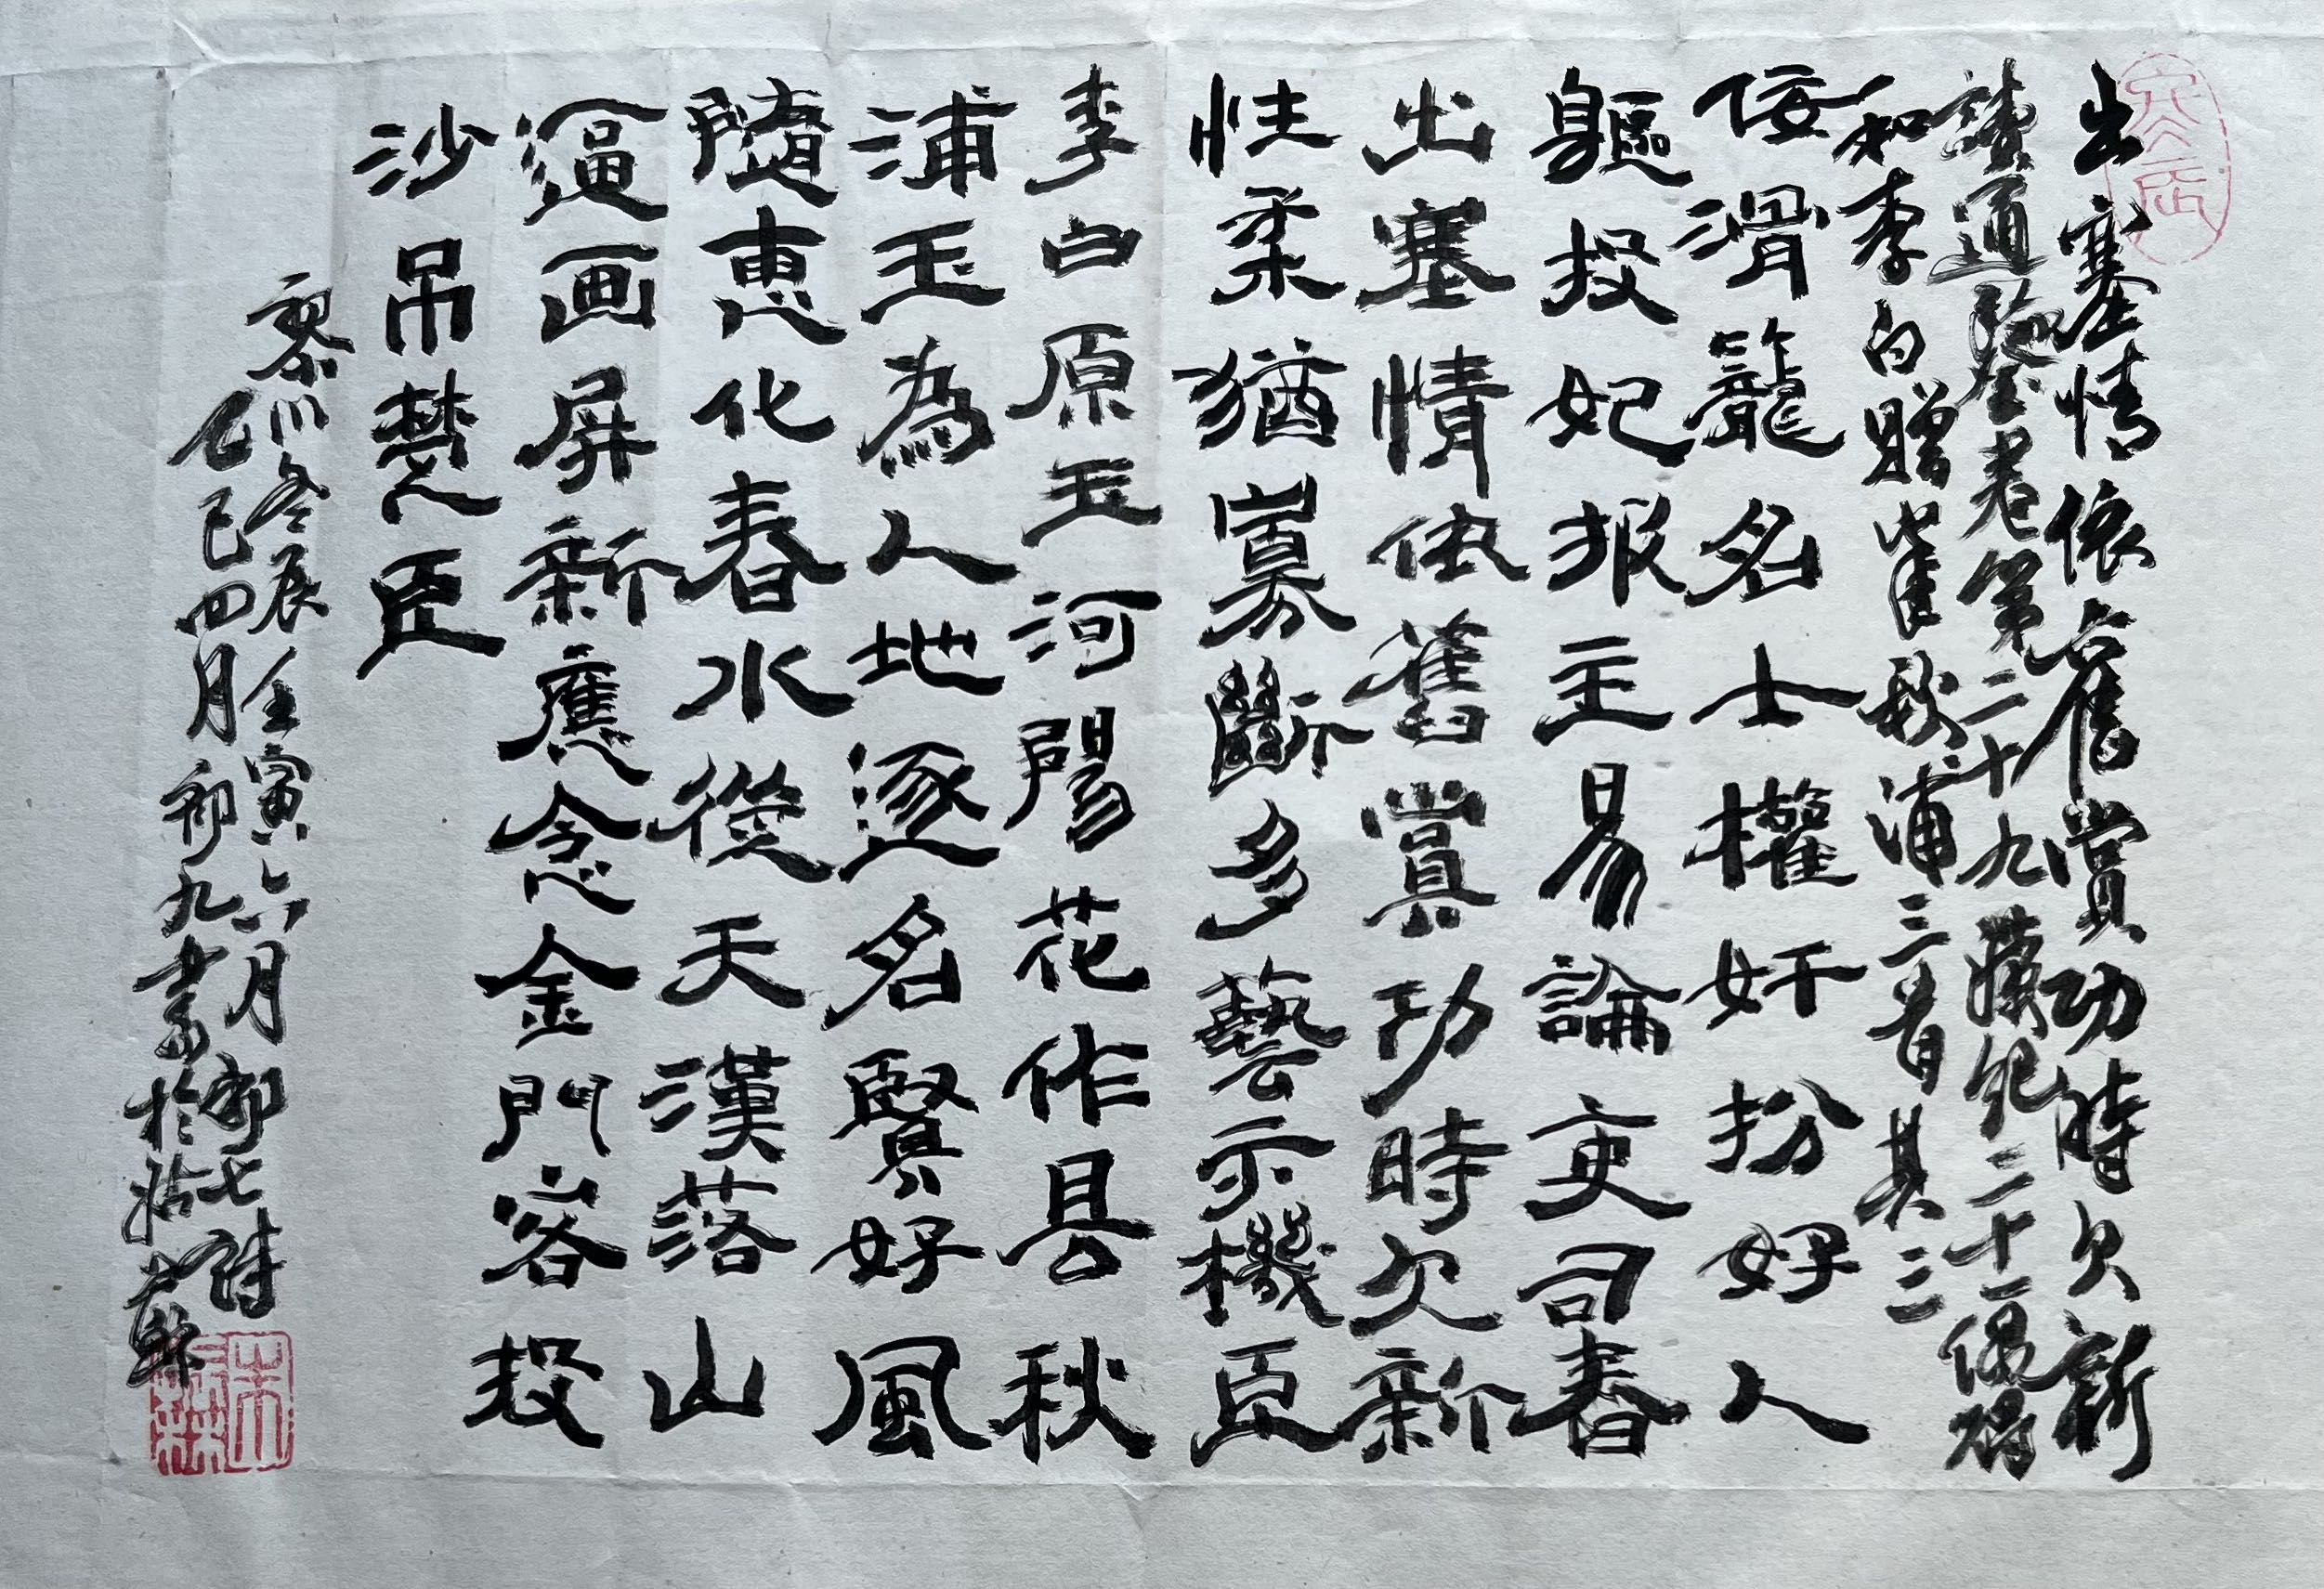 出塞情依舊賞功時欠新
讀通鑒卷第二十九漢紀二十一偶得
和李白贈崔秋浦三首其三
佞滑籠名士權奸扮好人
軀投妃报主易論吏司春
出塞情依舊賞功時欠新
性柔猶寡斷多藝示機臣
李白原玉河陽花作县秋
浦玉為人地逐名賢好風
隨惠化春水從天漢落山
逼画屏新應念金門客投
沙吊楚臣
黎川冬辰壬寅六月初七詩
乙巳四月初九書於